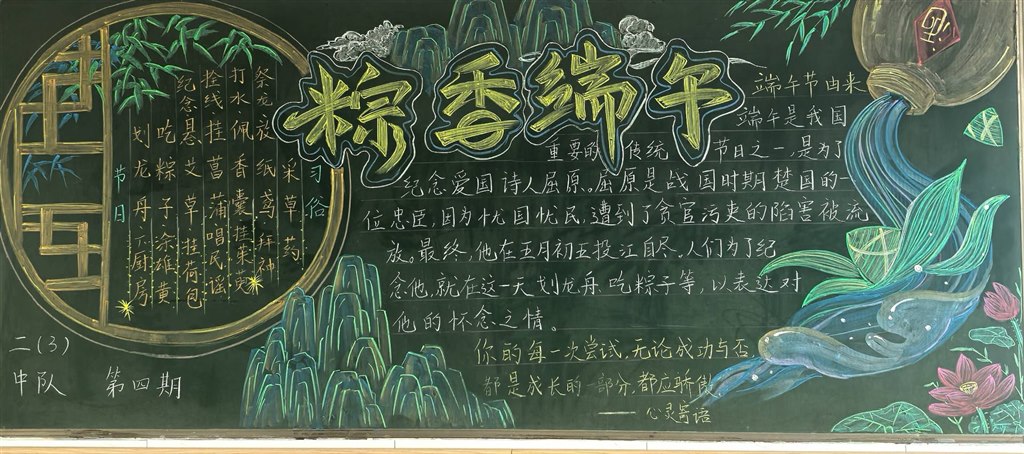 粽季端午
端午节由来
端午是我国
重要的传统节日之一,是为了
纪念爱国诗人屈原。屈原是战国时期楚国的一
位忠臣,因为忧国忧民,遭到了贪官污吏的陷害被流
放。最终,他在五月初五投江自尽。人们为了纪
念他,就在这一天划龙舟、吃粽子等,以表达对
他的怀念之情。
你的每一次尝试,无论成功与否
都是成长的一部分,都应骄傲
——心灵寄语
习俗
采草药
祭龙·放纸鸢·拜神
打水·佩香囊·挂茱萸
拴线·挂菖蒲·唱民谣
纪念·悬艾草·挂荷包
吃粽子·涂雄黄
划龙舟·下厨房
节日
二(3)
中队 第四期